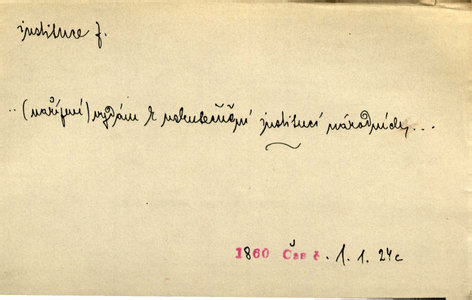 instituce f.
..(nařízení) vydám k uskutečnění institucí národních...
1860 Čas č. 1. 1. 24c